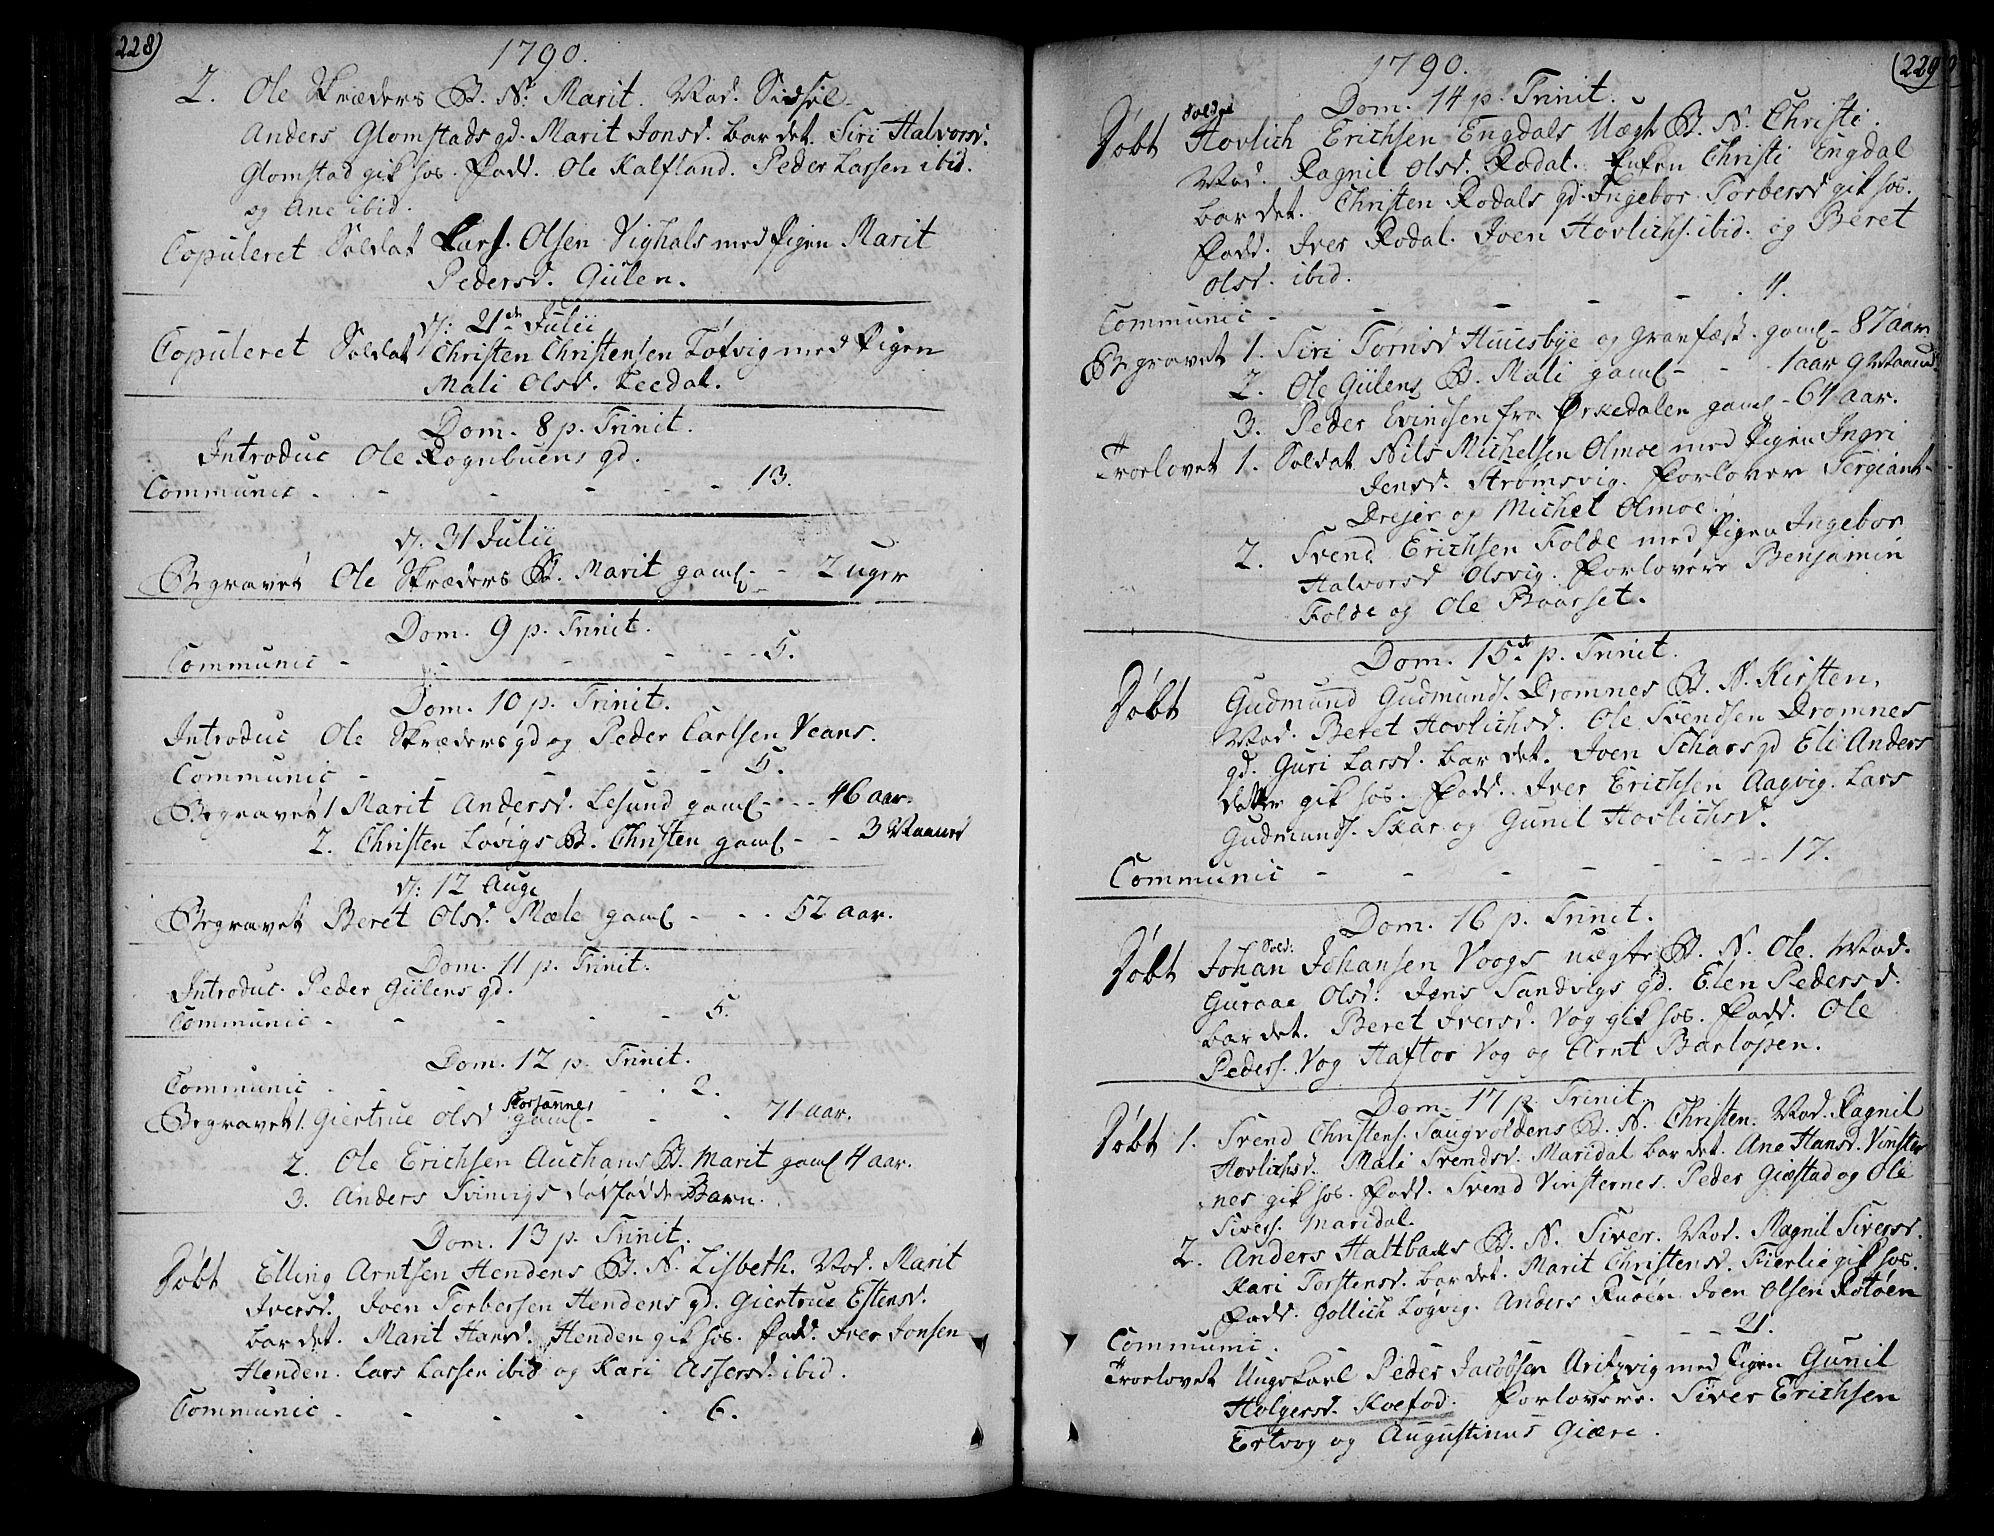 228)
1790.
2. Ole Skræders B. N: Marit. Mod. Sidsel
Anders Glomstads gd. Marit Jonsd. bar det. Siri Halvorsd.
Glomstad gik hos. Fadd. Ole Kalfland. Peder Larsen ibid.
og Ane ibid.
Copuleret Soldat Lars Olsen Vighals med Pigen Marit
Pedersd. Gülen.
d: 21de Julii
Copuleret Soldat Christen Christensen Løfvig med Pigen
Mali Olsd. Leedal.
Dom. 8 p. Trinit.
Introduc Ole Rognbuens gd.
Communic - - - - - - 13.
d. 31 Julii
Begravet Ole Skræders B. Marit gaml - - 2 uger
Dom. 9 p. Trinit.
Communic - - - - - - 5.
Dom. 10 p. Trinit.
Introduc Ole Skræders gd og Peder Carlsen Veans.
Communic - - - - - 5.
Begravet 1 Marit Andersd. Lesund gaml - - - 46 aar.
2. Christen Lovigs B. Christen gaml - - 3 Maaned
d: 12 Aug
Begravet Beret Olsd. Mæle gaml - - - 52 aar.
Dom. 11 p. Trinit.
Introduc. Peder Gülens gd.
Communic - - - - - 5.
Dom. 12 p. Trinit.
Communic - - - - - 2.
Begravet 1. Giertrue Olsd Korsannes gaml - - - 71 aar.
2. Ole Erichsen Auchans B. Marit gaml 4 aar.
3. Anders Svinvigs dødfødde Barn.
Dom. 13 p. Trinit.
Døbt Elling Arntsen Hendens B. N. Lisbeth. Mod. Marit
Iversd. Joen Torbersen Hendens gd. Giertrue Estensd.
bar det. Marit Hansd. Henden gik hos. Fadd. Iver Jonsen
Henden. Lars Larsen ibid og Kari Assersd. ibid.
Communic - - - - - 6.
(229
1790.
Dom. 14 p. Trinit.
Døbt Soldat Hovlich Erichsen Engdals Uægte B. N. Christi.
Mod. Ragnil Olsd. Rodal. Enken Christi Engdal
bar det. Christen Rodals gd. Ingebor Torbersd gik hos.
Fadd. Iver Rodal. Joen Hovlichs. ibid. og Beret
Olsd. ibid.
Communic - - - - - 4.
Begravet 1. Siri Tornisd Huusbye og Granfæst. gaml - 87 aar
2. Ole Gülens B. Mali gaml - - - 1 aar 9 Maaned
3. Peder Evindsen fra Ørkedalen gaml - 64 aar.
Troelovet 1. Soldat Nils Michelsen Olmoe med Pigen Ingri
Jensd. Strømsvig. Forlover Sergiant
Drejer og Michel Olmoe.
2. Svend Erichsen Folde med Pigen Ingebor
Halvorsd Olsvig. Forlovere Benjamin
Folde og Ole Baarset.
Dom. 15de p. Trinit.
Døbt Gudmund Gudmunds. Dromnes B. N. Kirsten,
Mod. Beret Hovlichsd. Ole Svendsen Dromnes
gd. Guri Larsd. bar det. Joen Schars gd Eli Anders
datter gik hos. Fadd. Iver Erichsen Aagvig. Lars
Gudmunds. Skar og Gunil Hovlichsd.
Communic - - - - - - 17.
Dom. 16 p. Trinit.
Døbt Sold: Johan Johansen Voogs uægte B. N. Ole. Mod.
Guraae Olsd. Jens Sandvigs gd. Elen Pedersd.
bar det. Beret Iversd. Vog gik hos. Fadd. Ole
Peders. Vog Haftor Vog og Arnt Barløpen.
Dom. 17 p. Trinit.
Døbt 1. Svend Christens. Saugvoldens B. N. Christen. Mod. Ragnil
Hovlichsd. Mali Svendsd. Maridal bar det. Ane Hansd. Vinster
nes gik hos. Fadd. Svend Vinsternes. Peder Giæstad og Ole
Sivers. Maridal.
2. Anders Haltbaks B. N. Siver. Mod. Magnil Siversd.
Kari Torstensd. bar det. Marit Christensd. Fierlie gik hos.
Fadd. Gollich Løgvig. Anders Ruøen Joen Olsen Rotøen
Communi. - - - - - 21.
Troelovet Ungkarl Peder Jacobsen Aritzvig med Pigen Gunil
Holgersd. Koefod. Forlovere. Siver Erichsen
Ertvog og Augustinus Giære.